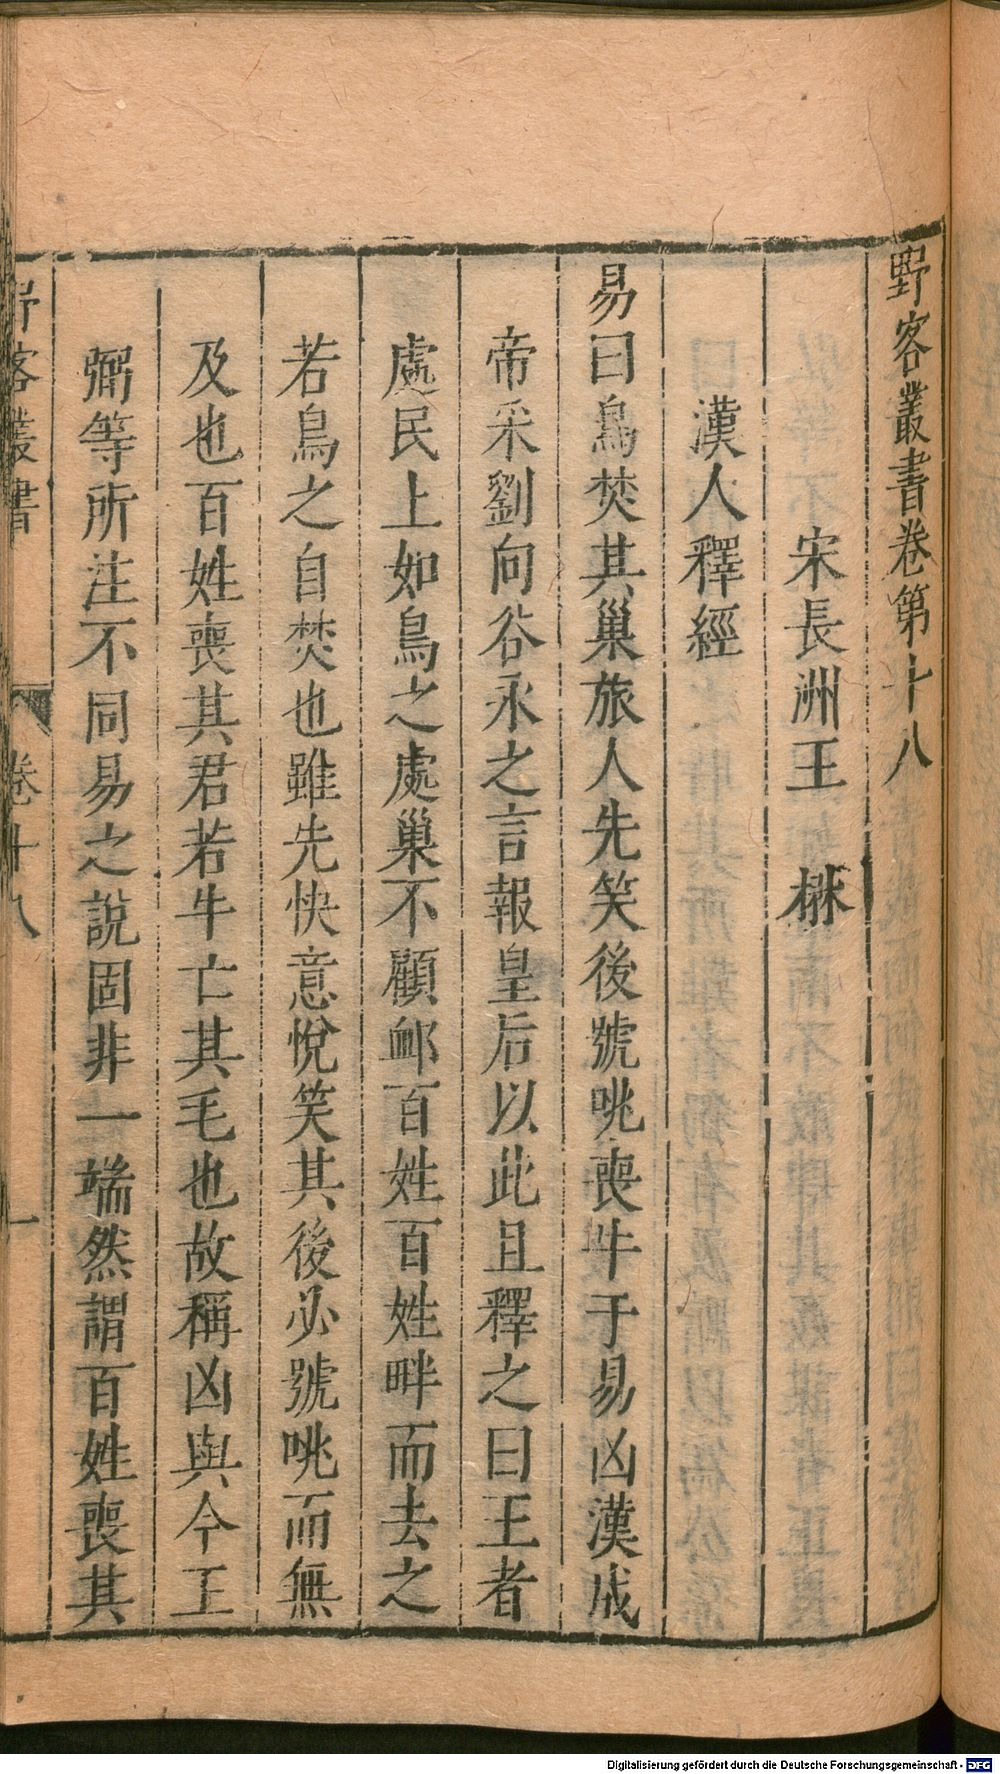 野客叢書卷第十八
宋長洲王　楙
漢人釋經
易曰鳥焚其巢旅人先笑後號咷喪牛于易凶漢成
帝采劉向谷永之言報皇后以此且釋之曰王者
處民上如鳥之處巢不顧䘏百姓百姓畔而去之
若鳥之自焚也雖先快意悅笑其後必號咷而無
及也百姓喪其君若牛亡其毛也故稱凶與今王
弼等所注不同易之說固非一端然謂百姓喪其
野客叢書　卷十八　一
Digitalisierung gefördert durch die Deutsche Forschungsgemeinschaft - DFG